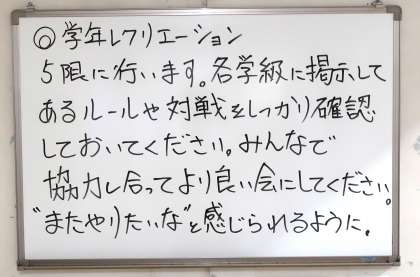 ◎学年レクリエーション
5限に行います。各学級に掲示して
あるルールや対戦をしっかり確認
しておいてください。みんなで
協力し合ってより良い会にしてください。
"またやりたいな"と感じられるように。